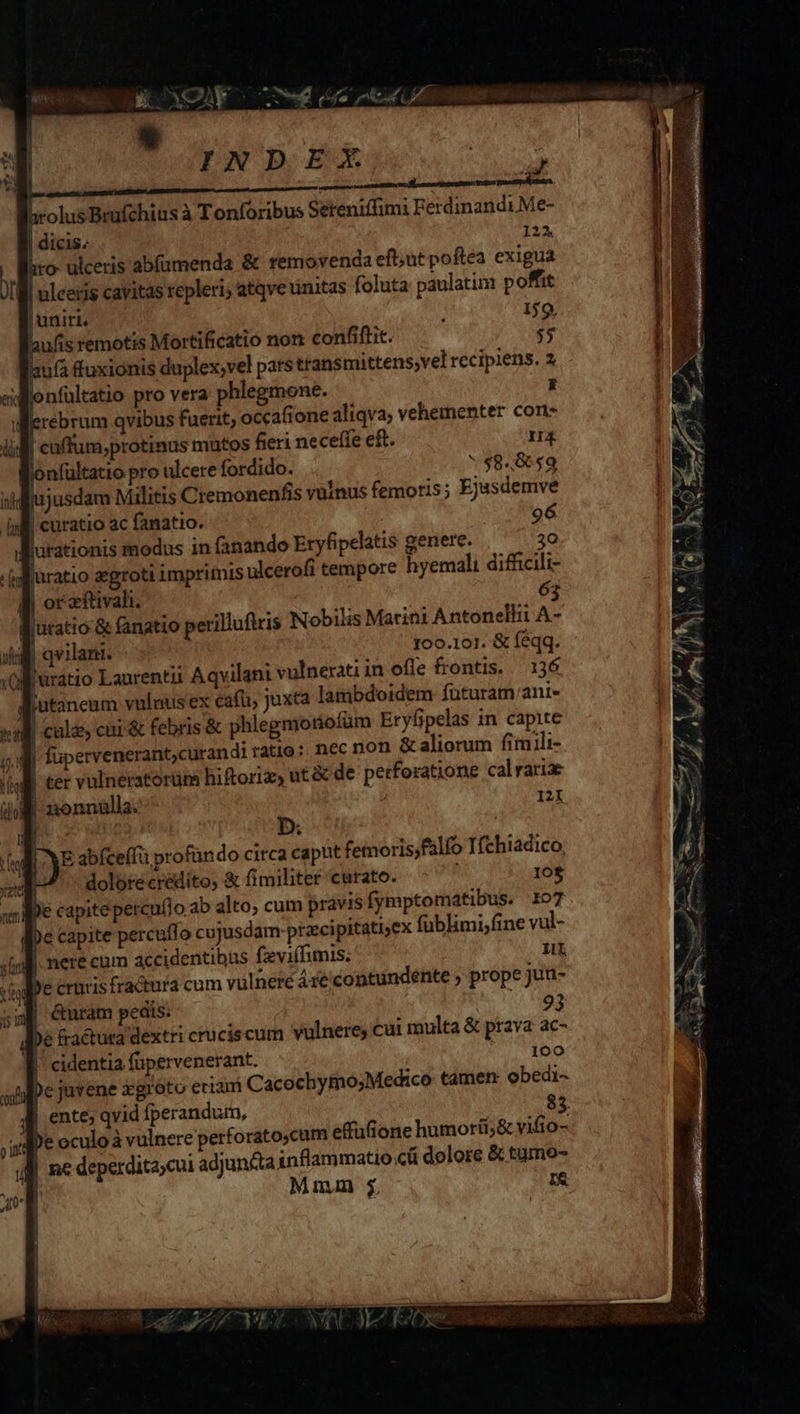 INDEX
arolus Bruſchius à Tonſoribus Sereniſſimi Ferdinandi Me-
dicis. 122
aro ulceris abſumenda & removenda eſt, ut poſtea exigua
ulceris cavitas repleri, atqve unitas ſoluta paulatim poſſit
uniri. 159.
auſis remotis Mortificatio non conſiſtit. 55
auſa fluxionis duplex, vel pars transmittens, vel recipiens. 2
onſultatio pro vera phlegmone. 1
erebrum qvibus fuerit, occaſione aliqva, vehementer con-
cuſſum, protinus mutos fieri neceſſe eſt. 114
onſultatio pro ulcere ſordido. 58. & 59
ujusdam Militis Cremonenſis vulnus femoris; Ejusdemve
curatio ac ſanatio. 96
urationis modus in ſanando Eryſipelatis genere. 30
uratio ægroti imprimis ulceroſi tempore hyemali difficili-
or æſtivali. 63
uratio & ſanatio perilluſtris Nobilis Marini Antonellii A-
qvilani. 100.101. & ſeqq.
uratio Laurentii Aqvilani vulnerati in oſſe frontis. 136
utaneum vulnus ex caſu, juxta lambdoidem ſuturam ani-
culæ, cui & febris & phlegmonoſum Eryſipelas in capite
ſupervenerant, curandi ratio: nec non & aliorum ſimili-
ter vulneratorum hiſtoriæ, ut & de perforatione calvariæ
nonnulla. 121
D.
E abſceſſu profundo circa caput femoris, falſo Iſchiadico
dolore credito, & ſimiliter curato. 105
De capite percuſſo ab alto, cum pravis ſymptomatibus. 107
De capite percuſſo cujusdam præcipitati, ex ſublimi, ſine vul-
nere cum accidentibus ſæviſſimis. 111
De cruris fractura cum vulnere à re contundente, prope jun-
cturam pedis. 93
De fractura dextri crucis cum vulnere, cui multa & prava ac-
cidentia ſupervenerant. 100
De juvene ægroto etiam Cacochymo, Medico tamen obedi-
ente, qvid ſperandum, 83
De oculo à vulnere perforato, cum effuſione humorū, & viſio-
ne deperdita, cui adjuncta inflammatio cū dolore & tumo-
Mmm 5 re